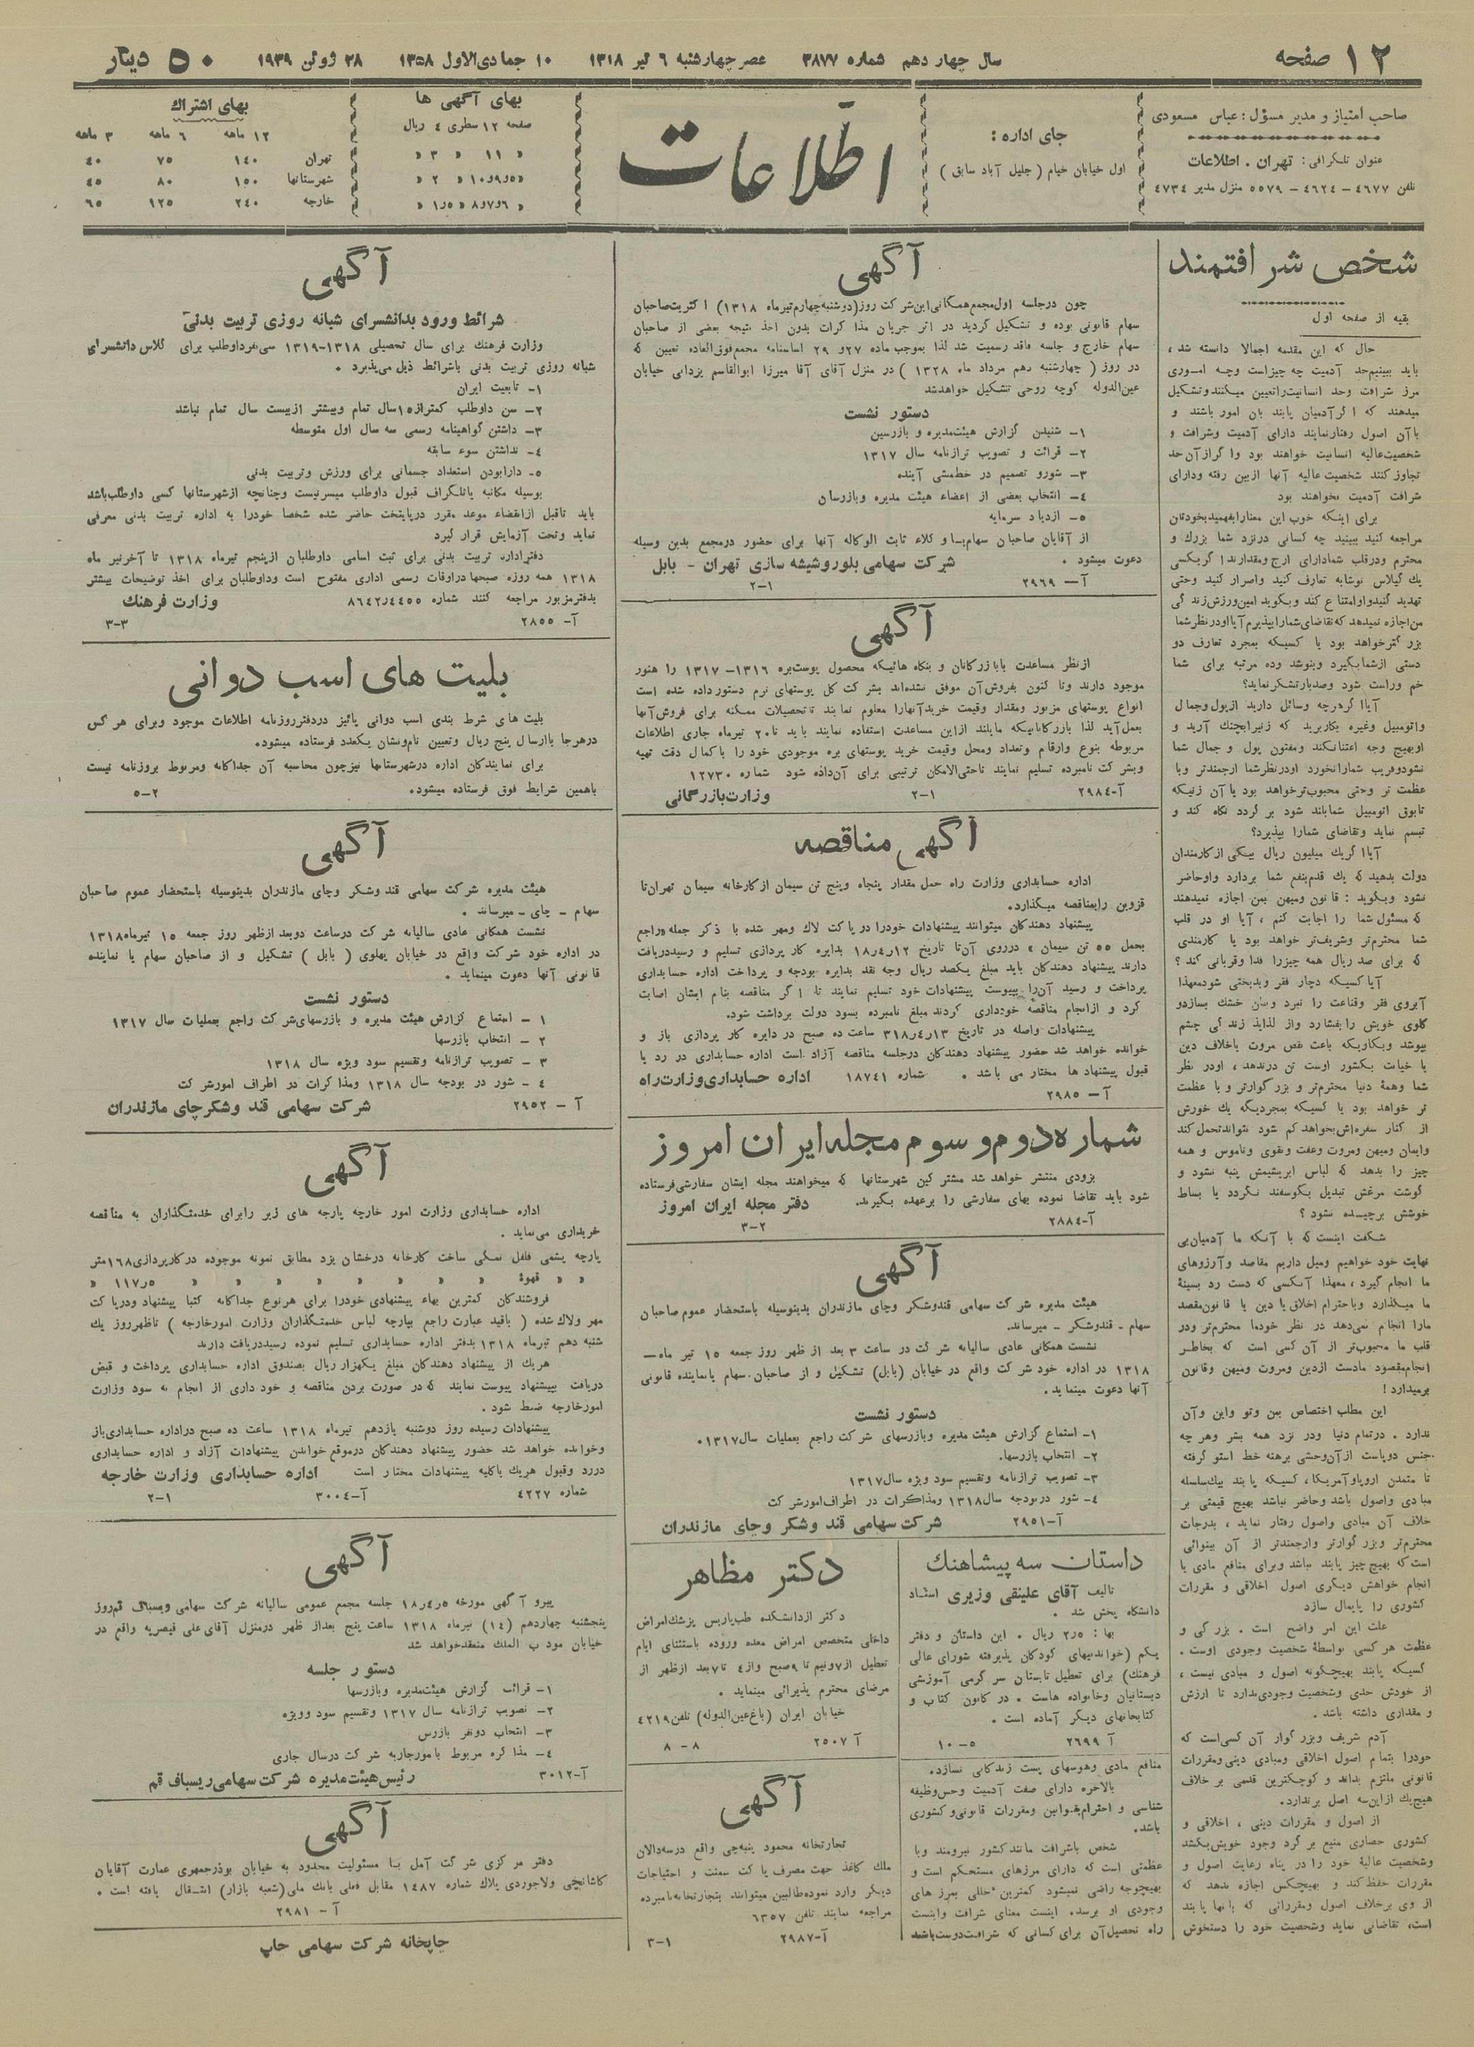 ۱۲ صفحه
سال چهاردهم شماره ۳۸۷۷ عصر چهارشنبه ۶ تیر ۱۳۱۸ ۱۰ جمادی‌الاول ۱۳۵۸ ۲۸ ژوئن ۱۹۳۹
۵۰ دینار
صاحب امتیاز و مدیر مسؤل: عباس مسعودی
عنوان تلگرافی: تهران . اطلاعات
تلفن ۴۶۷۷ – ۴۶۲۴ – ۵۵۷۹ منزل مدیر ۴۷۳۴
جای اداره:
اول خیابان خیام ( جلیل آباد سابق )
اطلاعات
بهای آگهی ها
صفحه ۱۲ سطری ۴ ریال
« ۱۱ « ۳ «
« ۵و۹و۱۰ « ۲ «
« ۶و۷و۸ « ۱ر۵ «
بهای اشتراك
۱۲ ماهه ۶ ماهه ۳ ماهه
تهران ۱۴۰ ۷۵ ۴۰
شهرستانها ۱۵۰ ۸۰ ۴۵
خارجه ۲۴۰ ۱۲۵ ۶۵
شخص شرافتمند
بقیه از صفحه اول
حال که این مقدمه اجمالا دانسته شد ،
باید ببینیم حد آدمیت چه چیز است وچه اموری
مرز شرافت وحد انسانیت راتعیین میکنند وتشکیل
میدهند که اگر آدمیان پابند بان امور باشند و
باآن اصول رفتار نمایند دارای آدمیت وشرافت و
شخصیت عالیه انسانیت خواهند بود واگر از آن حد
تجاوز کنند شخصیت عالیه آنها ازبین رفته ودارای
شرافت آدمیت نخواهند بود
برای اینکه خوب این معنا رابفهمید بخودتان
مراجعه کنید ببینید چه کسانی درنزد شما بزرك و
محترم ودرقلب شما دارای ارج ومقدارند؟ اگر یکسی
یك گیلاس نوشابه تعارف کنید واصرار کنید وحتی
تهدید کنید واو امتناع کند وبگوید امین ورزش زندگی
من اجازه نمیدهد که تقاضای شمارا بپذیرم آیا او در نظر شما
بزرگتر خواهد بود یا کسیکه بمجرد تعارف دو
دستی ازشما بگیرد وبنوشد وده مرتبه برای شما
خم وراست شود وصدبار تشکر نماید؟
آیا اگر هرچه وسائل دارید ازپول وجمال
واتومبیل وغیره بکار برید که زنیرا بچنك آرید و
اوبهیچ وجه اعتنا نکند ومفتون پول و جمال شما
نشود وفریب شما رانخورد اودر نظر شما ارجمندتر وبا
عظمت تر وحتی محبوب‌تر خواهد بود یا آن زنیکه
تابوق اتومبیل شما بلند شود بر گردد نگاه کند و
تبسم نماید وتقاضای شمارا بپذیرد؟
آیا اگر یك میلیون ریال بیکی از کارمندان
دولت بدهید که یك قدم بنفع شما بردارد واوحاضر
نشود وبگوید: قانون ومیهن بمن اجازه نمیدهند
که مسئول شما را اجابت کنم ، آیا او در قلب
شما محترم‌تر وشریف‌تر خواهد بود یا کارمندی
که برای صد ریال همه چیز را فدا وقربانی کند ؟
آیا کسیکه دچار فقر وبدبختی شود معهذا
آبروی فقر وقناعت را نبرد وبنان خشك بسازد و
گلوی خویش را بفشارد واز لذایذ زندگی چشم
بپوشد وبکاریکه باعث نقص مروت یا خلاف دین
یا خیانت بکشور اوست تن درندهد ، اودر نظر
شما وهمهٔ دنیا محترم‌تر و بزرگوارتر و با عظمت
تر خواهد بود یا کسیکه بمجردیکه یك خورش
از کنار سفره‌اش بخواهد کم شود نتواند تحمل کند
وایمان ومیهن ومروت وعفت وتقوی وناموس و همه
چیز را بدهد که لباس ابریشمیش پنبه نشود و
گوشت مرغش تبدیل بگوسفند نگردد یا بساط
خوشش برچیده نشود ؟
شگفت اینست که با آنکه ما آدمیان بی
نهایت خود خواهیم ومیل داریم مقاصد وآرزوهای
ما انجام گیرد ، معهذا آنکسی که دست رد بسینهٔ
ما میگذارد وباحترام اخلاق یا دین یا قانون مقصد
مارا انجام نمی‌دهد در نظر خودما محترم‌تر ودر
قلب ما محبوب‌تر از آن کسی است که بخاطر
انجام مقصود مادست ازدین ومروت ومیهن وقانون
برمیدارد !
این مطلب اختصاص بمن وتو واین وآن
ندارد . درتمام دنیا ودر نزد همه بشر وهر چه
جنس دوپاست از آن وحشی برهنه خط استوا گرفته
تا متمدن اروپا وآمریکا ، کسیکه پا بند بیك سلسله
مبادی واصول باشد وحاضر نباشد بهیچ قیمتی بر
خلاف آن مبادی واصول رفتار نماید ، بدرجات
محترم‌تر وبزرگوارتر وارجمندتر از آن بینوائی
است که بهیچ چیز پابند نباشد وبرای منافع مادی یا
انجام خواهش دیگری اصول اخلاقی و مقررات
کشوری را پایمال سازد
علت این امر واضح است . بزرگی و
عظمت هر کسی بواسطهٔ شخصیت وجودی اوست .
کسیکه پابند بهیچگونه اصول و مبادی نیست ،
از خودش حدی وشخصیت وجودی ندارد تا ارزش
و مقداری داشته باشد .
آدم شریف وبزرگوار آن کسی است که
خودرا بتمام اصول اخلاقی ومبادی دینی ومقررات
قانونی ملتزم بداند و کوچکترین قدمی بر خلاف
هیچیك ازاین سه اصل برندارد.
از اصول و مقررات دینی ، اخلاقی و
کشوری حصاری منیع بر گرد وجود خویش بکشد
وشخصیت عالیهٔ خود را در پناه رعایت اصول و
مقررات حفظ کند و بهیچکس اجازه ندهد که
از وی برخلاف اصول ومقرراتی که بانها پا بند
است، تقاضائی نماید وشخصیت خود را دستخوش
منافع مادی وهوسهای پست زندگانی نسازد.
بالاخره دارای صفت آدمیت وحس وظیفه
شناسی و احترام بقوانین ومقررات قانونی وکشوری
باشد.
شخص باشرافت مانند کشور نیرومند وبا
عظمتی است که دارای مرزهای مستحکم است و
بهیچوجه راضی نمیشود کمترین خللی بمرز های
وجودی او برسد. اینست معنای شرافت واینست
راه تحصیل آن برای کسانی که شرافت دوست باشند
آگهی
چون درجلسه اول مجمع همگانی این شرکت روز(دوشنبه چهارم تیر ماه ۱۳۱۸) اکثریت صاحبان
سهام قانونی بوده و تشکیل گردید در اثر جریان مذاکرات بدون اخذ نتیجه بعضی از صاحبان
سهام خارج و جلسه فاقد رسمیت شد لذا بموجب ماده ۲۷و ۲۹ اساسنامه مجمع فوق‌العاده تعیین که
در روز ( چهارشنبه دهم مرداد ماه ۱۳۲۸ ) در منزل آقای آقا میرزا ابوالقاسم یزدانی خیابان
عین‌الدوله کوچه روحی تشکیل خواهد شد
دستور نشست
۱- شنیدن گزارش هیئت مدیره و بازرسین
۲- قرائت و تصویب ترازنامه سال ۱۳۱۷
۳- شورو تصمیم در خط مشی آینده
۴- انتخاب بعضی از اعضاء هیئت مدیره وبازرسان
۵- ازدیاد سرمایه
از آقایان صاحبان سهام یا وکلاء ثابت الوکاله آنها برای حضور درمجمع بدین وسیله
دعوت میشود . شرکت سهامی بلور وشیشه سازی تهران - بابل
آ– ۲۹۶۹ ۱–۲
آگهی
ازنظر مساعدت بابازرگانان و بنگاه هائیکه محصول پوست بره ۱۳۱۶- ۱۳۱۷ را هنوز
موجود دارند وتا کنون بفروش آن موفق نشده‌اند بشرکت کل پوستهای نرم دستور داده شده است
انواع پوستهای مزبور ومقدار وقیمت خرید آنها را معلوم نمایند تاتحصیلات ممکنه برای فروش آنها
بعمل آید لذا بازرگانانیکه مایلند ازاین مساعدت استفاده نمایند باید تا۲۰ تیرماه جاری اطلاعات
مربوطه بنوع وارقام وتعداد ومحل وقیمت خرید پوستهای بره موجودی خود را باکمال دقت تهیه
وبشرکت نامبرده تسلیم نمایند تاحتی‌الامکان ترتیبی برای آن داده شود شماره ۱۲۷۳۰
آ-۲۹۸۴ ۱–۲ وزارت بازرگانی
آگهی مناقصه
اداره حسابداری وزارت راه حمل مقدار پنجاه وپنج تن سیمان از کارخانه سیمان تهران تا
قزوین را بمناقصه میگذارد.
پیشنهاد دهندگان میتوانند پیشنهادات خود را درپاکت لاك ومهر شده با ذکر جمله «راجع
بحمل ۵۵ تن سیمان » درروی آن تا تاریخ ۱۲ر۴ر۱۸ بدایره کار پردازی تسلیم و رسید دریافت
دارند پیشنهاد دهندگان باید مبلغ یکصد ریال وجه نقد بدایره بودجه و پرداخت اداره حسابداری
پرداخت و رسید آن را بپیوست پیشنهادات خود تسلیم نمایند تا اگر مناقصه بنام ایشان اصابت
کرد و ازانجام مناقصه خودداری کردند مبلغ نامبرده بسود دولت برداشت شود.
پیشنهادات واصله در تاریخ ۱۳ر۴ر۳۱۸ ساعت ده صبح در دایره کار پردازی باز و
خوانده خواهد شد حضور پیشنهاد دهندگان درجلسه مناقصه آزاد است اداره حسابداری در رد یا
قبول پیشنهاد ها مختار می باشد . شماره ۱۸۷۴۱ اداره حسابداری وزارت راه
آ – ۲۹۸۵
شماره دوم و سوم مجله ایران امروز
بزودی منتشر خواهد شد مشترکین شهرستانها که میخواهند مجله ایشان سفارشی فرستاده
شود باید تقاضا نموده بهای سفارشی را برعهده بگیرند. دفتر مجله ایران امروز
آ-۲۸۸۴ ۲–۳
آگهی
هیئت مدیره شرکت سهامی قندوشکر وچای مازندران بدینوسیله باستحضار عموم صاحبان
سهام - قندوشکر - میرساند.
نشست همگانی عادی سالیانه شرکت در ساعت ۳ بعد از ظهر روز جمعه ۱۵ تیر ماه–
۱۳۱۸ در اداره خود شرکت واقع در خیابان (بابل) تشکیل و از صاحبان سهام یا نماینده قانونی
آنها دعوت مینماید.
دستور نشست
۱- استماع گزارش هیئت مدیره وبازرسهای شرکت راجع بعملیات سال ۱۳۱۷.
۲- انتخاب بازرسها.
۳- تصویب ترازنامه وتقسیم سود ویژه سال ۱۳۱۷
۴- شور دربودجه سال ۱۳۱۸ ومذاکرات در اطراف امور شرکت
آ-۲۹۵۱ شرکت سهامی قند و شکر وچای مازندران
داستان سه پیشاهنك
تالیف آقای علینقی وزیری استاد
دانشگاه پخش شد .
بها: ۲ر۵ ریال . این داستان و دفتر
یکم (خواندنیهای کودکان پذیرفته شورای عالی
فرهنگ) برای تعطیل تابستان سرگرمی آموزشی
دبستانیان وخانواده هاست . در کانون کتاب و
کتابخانهای دیگر آماده است .
آ ۲۶۹۹ ۵–۱۰
دکتر مظاهر
دکتر ازدانشکده طب پاریس پزشك امراض
داخلی متخصص امراض معده وروده باستثنای ایام
تعطیل از۷ونیم تا ۹صبح واز۴ تا۷بعد ازظهر از
مرضای محترم پذیرائی مینماید .
خیابان ایران (باغ عین‌الدوله) تلفن ۴۲۱۹
آ ۲۵۰۷ ۸ – ۸
آگهی
تجارتخانه محمود پنبه‌چی واقع درسه‌دالان
ملك کاغذ جهت مصرف پاکت سمنت و احتیاجات
دیگر وارد نموده طالبین میتوانند بتجارتخانه نامبرده
مراجعه نمایند تلفن ۶۳۵۷
آ-۲۹۸۷ ۱–۳
آگهی
شرائط ورود بدانشسرای شبانه روزی تربیت بدنی
وزارت فرهنك برای سال تحصیلی ۱۳۱۸-۱۳۱۹ سی نفر داوطلب برای کلاس دانشسرای
شبانه روزی تربیت بدنی باشرائط ذیل می‌پذیرد .
۱- تابعیت ایران
۲- سن داوطلب کمتر از۱۵سال تمام وبیشتر از بیست سال تمام نباشد
۳- داشتن گواهینامه رسمی سه سال اول متوسطه
۴- نداشتن سوء سابقه
۵- دارا بودن استعداد جسمانی برای ورزش وتربیت بدنی
بوسیله مکاتبه یا تلگراف قبول داوطلب میسر نیست وچنانچه ازشهرستانها کسی داوطلب باشد
باید تاقبل از انقضاء موعد مقرر درپایتخت حاضر شده شخصا خودرا به اداره تربیت بدنی معرفی
نماید وتحت آزمایش قرار گیرد
دفتر اداره تربیت بدنی برای ثبت اسامی داوطلبان از پنجم تیرماه ۱۳۱۸ تا آخر تیر ماه
۱۳۱۸ همه روزه صبحها دراوقات رسمی اداری مفتوح است وداوطلبان برای اخذ توضیحات بیشتر
بدفتر مزبور مراجعه کنند شماره ۴۴۵۵ر۸۶۴۲ وزارت فرهنك
آ- ۲۸۵۵ ۳–۳
بلیت های اسب دوانی
بلیت های شرط بندی اسب دوانی پائیز دردفتر روزنامه اطلاعات موجود وبرای هر کس
درهرجا باارسال پنج ریال وتعیین نام‌ونشان یکعدد فرستاده میشود.
برای نمایندگان اداره درشهرستانها نیز چون محاسبه آن جداگانه ومربوط بروزنامه نیست
باهمین شرایط فوق فرستاده میشود. ۲–۵
آگهی
هیئت مدیره شرکت سهامی قند وشکر وچای مازندران بدینوسیله باستحضار عموم صاحبان
سهام - چای - میرساند .
نشست همگانی عادی سالیانه شرکت درساعت دوبعد ازظهر روز جمعه ۱۵ تیرماه۱۳۱۸
در اداره خود شرکت واقع در خیابان پهلوی ( بابل ) تشکیل و از صاحبان سهام یا نماینده
قانونی آنها دعوت مینماید .
دستور نشست
۱ - استماع گزارش هیئت مدیره و بازرسهای شرکت راجع بعملیات سال ۱۳۱۷
۲ - انتخاب بازرسها
۳ - تصویب ترازنامه وتقسیم سود ویژه سال ۱۳۱۸
۴ - شور در بودجه سال ۱۳۱۸ ومذاکرات در اطراف امورشرکت
آ – ۲۹۵۲ شرکت سهامی قند وشکرچای مازندران
آگهی
اداره حسابداری وزارت امور خارجه پارچه های زیر رابرای خدمتگذاران به مناقصه
خریداری می‌نماید .
پارچه پشمی فلفل نمکی ساخت کارخانه درخشان یزد مطابق نمونه موجوده در کارپردازی۱۶۸متر
« « قهوهٔ « « « « « « « « ۱۱۷ر۵ «
فروشندگان کمترین بهاء پیشنهادی خودرا برای هرنوع جداگانه کتبا پیشنهاد ودرپاکت
مهر ولاك شده ( باقید عبارت راجع بپارچه لباس خدمتگذاران وزارت امورخارجه ) تاظهر روز یك
شنبه دهم تیرماه ۱۳۱۸ بدفتر اداره حسابداری تسلیم نموده رسید دریافت دارند
هریك از پیشنهاد دهندگان مبلغ یکهزار ریال بصندوق اداره حسابداری پرداخت و قبض
دریافت بپیشنهاد پیوست نمایند که در صورت بردن مناقصه و خود داری از انجام به سود وزارت
امورخارجه ضبط شود .
پیشنهادات رسیده روز دوشنبه یازدهم تیرماه ۱۳۱۸ ساعت ده صبح دراداره حسابداری باز
وخوانده خواهد شد حضور پیشنهاد دهندگان درموقع خواندن پیشنهادات آزاد و اداره حسابداری
دررد وقبول هریك یاکلیه پیشنهادات مختار است اداره حسابداری وزارت خارجه
شماره ۴۲۲۷ آ-۳۰۰۴ ۱–۲
آگهی
پیرو آگهی مورخه ۵ر۴ر۱۸ جلسه مجمع عمومی سالیانه شرکت سهامی ریسباف قم روز
پنجشنبه چهاردهم (۱۴) تیرماه ۱۳۱۸ ساعت پنج بعداز ظهر درمنزل آقای علی قیصریه واقع در
خیابان مودب الملك منعقد خواهد شد
دستور جلسه
۱- قرائت گزارش هیئت مدیره وبازرسها
۲- تصویب ترازنامه سال ۱۳۱۷ وتقسیم سود وویژه
۳- انتخاب دونفر بازرس
۴- مذاکره مربوط بامورجاریه شرکت درسال جاری
آ-۳۰۱۲ رئیس هیئت مدیره شرکت سهامی ریسباف قم
آگهی
دفتر مرکزی شرکت آمل با مسئولیت محدود به خیابان بوذرجمهری عمارت آقایان
کاشانچی ولاجوردی پلاك شماره ۱۴۸۷ مقابل فعلی بانك ملی(شعبه بازار) انتقال یافته است .
آ – ۲۹۸۱
چاپخانه شرکت سهامی چاپ